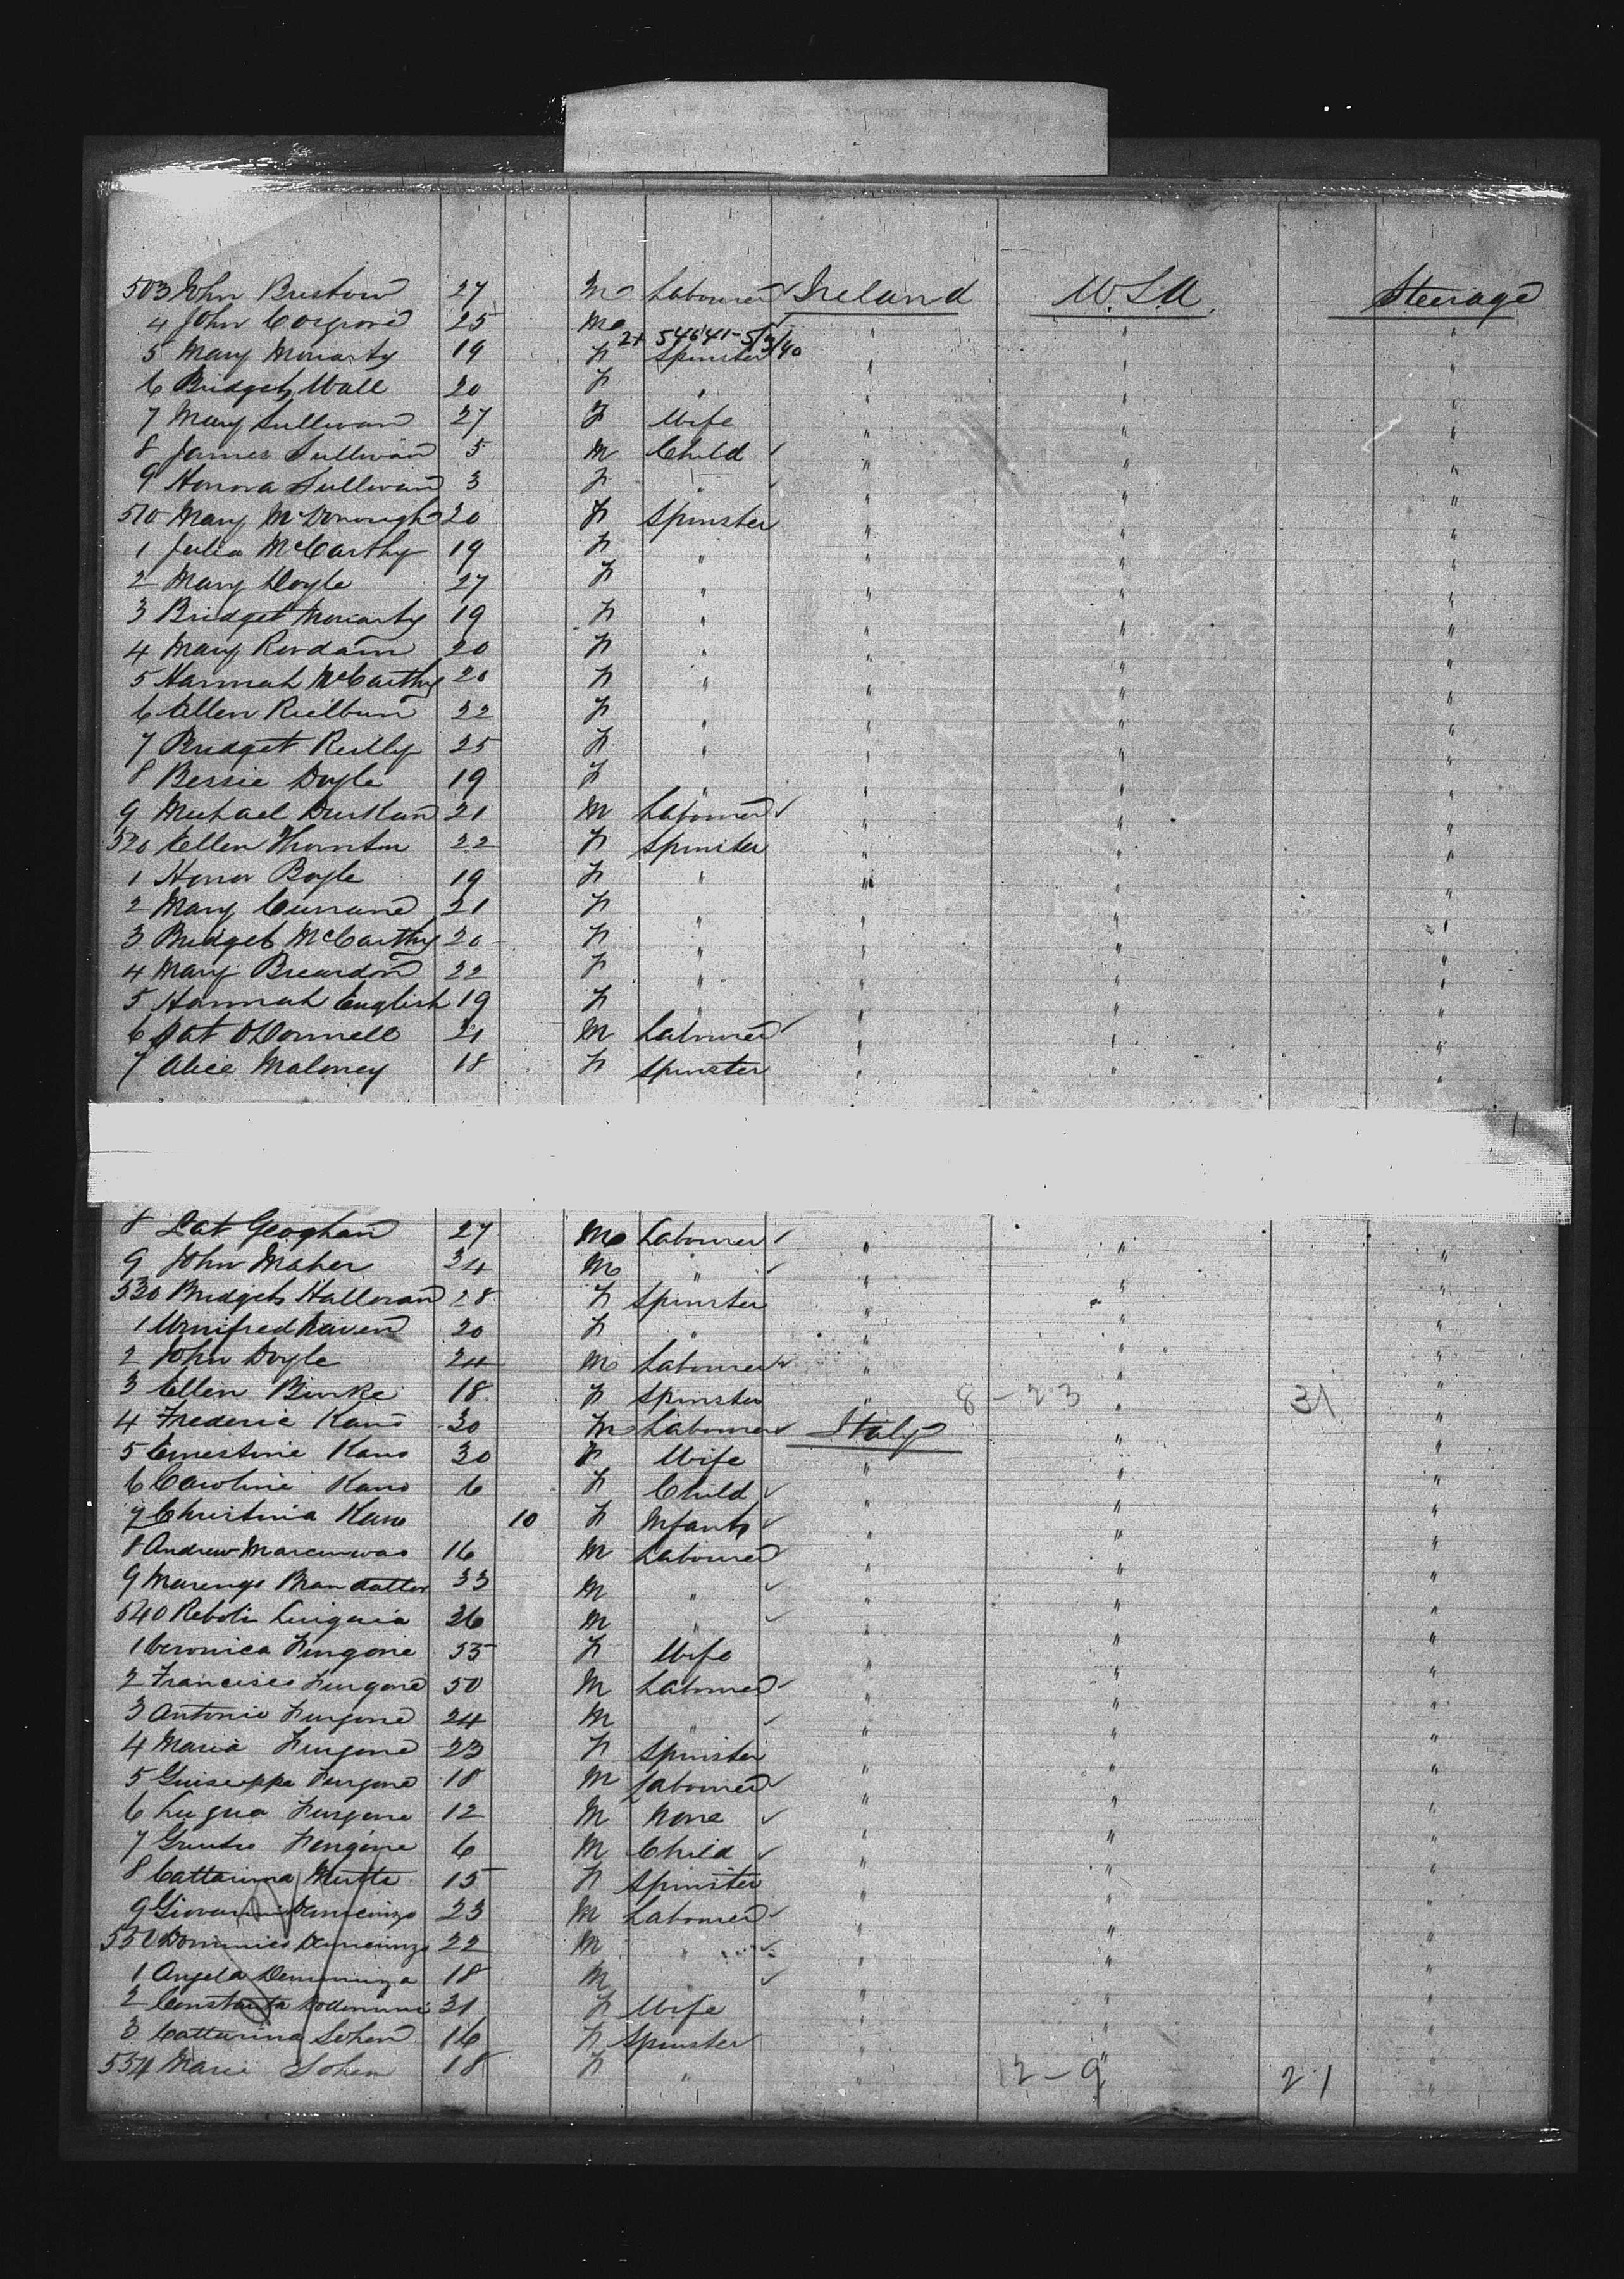 503 John Bristow 27 M Labourer Ireland U.S.A. Steerage
4 John Cosgrove 25 M " " "
2+ 54641-5/3/40
5 Mary Moriarty 19 F Spinster " " "
6 Bridget Wall 20 F " " " "
7 Mary Sullivan 27 F Wife " " "
8 James Sullivan 5 M Child " " "
9 Honora Sullivan 3 F " " " "
510 Mary McDonough 20 F Spinster " " "
1 Julia McCarthy 19 F " " " "
2 Mary Doyle 27 F " " " "
3 Bridget Moriarty 19 F " " " "
4 Mary Rordam 20 F " " " "
5 Hannah McCarthy 20 F " " " "
6 Ellen 22 F " " " "
7 Bridget Reilly 25 F " " " "
8 Bessie Doyle 19 F " " " "
9 Michael Durkan 21 M Labourer " " "
520 Ellen Thornton 22 F Spinster " " "
1 Honor Boyle 19 F " " " "
2 Mary Currane 21 F " " " "
3 Bridget McCarthy 20 F " " " "
4 Mary 22 F " " " "
5 Hannah English 19 F " " " "
6 Pat O'Donnell 21 M Labourer " " "
7 Alice Maloney 18 F Spinster " " "
8 Pat Geoghan 27 M Labourer " " "
9 John Maher 24 M " " " "
530 Bridget Halloran 28 F Spinster " " "
1 Winifred Kaven 20 F " " " "
2 John Doyle 24 M Labourer " " "
3 Ellen Burke 18 F Spinster " 8-23 " 31 "
4 Frederic Kano 30 M Labourer Italy " "
5 Ernestine Kano 30 F Wife " " "
6 Caroline Kano 6 F Child " " "
7 Christina Kano 10 F Infant " " "
8 Andrew 16 M Labourer " " "
9 Marengo 33 M " " " "
540 Reboli 36 M " " " "
1 Veronica Furgone 55 F Wife " " "
2 Francisco Furgone 50 M Labourer " " "
3 Antonio Furgone 24 M " " " "
4 Maria Furgone 23 F Spinster " " "
5 Guiseppe Furgone 18 M Labourer " " "
6 Furgone 12 M None " " "
7 Furgone 6 M Child " " "
8 Cattarina 15 F Spinster " " "
9 Giovanni 23 M Labourer " " "
550 Dominico 22 M " " " "
1 Angela 18 M " " " "
2 Constanta 31 F Wife " " "
3 Cattarina Sohen 16 F Spinster " " "
554 Marie Sohen 18 F " " 12-9 " 21 "